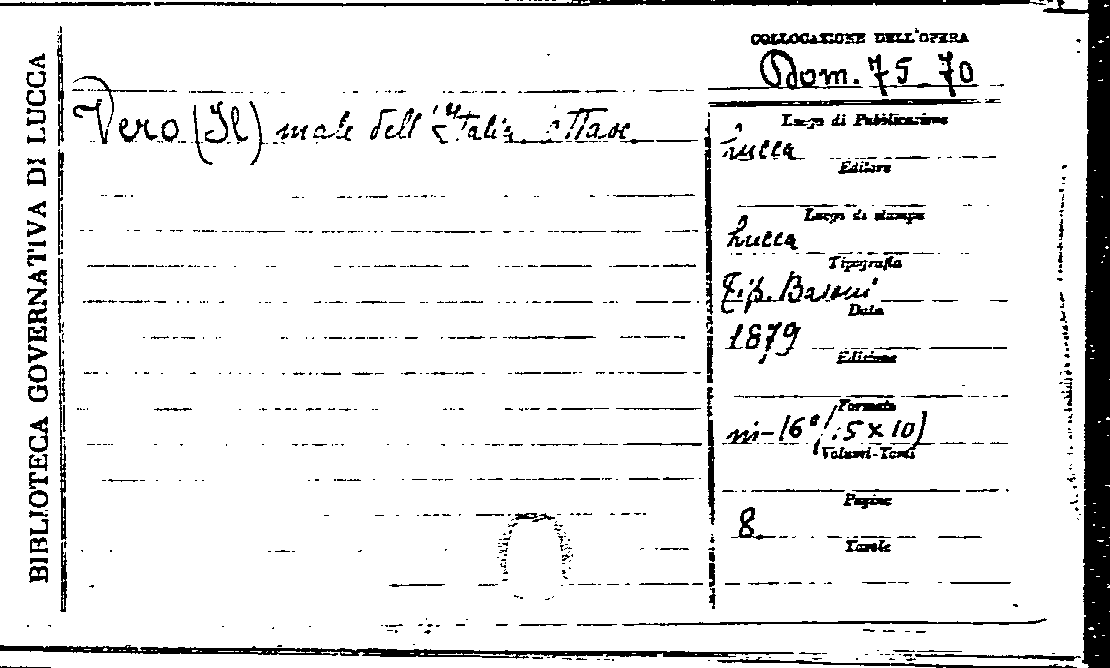 BIBLIOTECA GOVERNATIVA DI LUCCA
COLLOCAZIONE DELL'OPERA
Dom. 75 70
Vero (Il) male dell'Italia. Ottave.
Luogo di Pubblicazione
Lucca
Editore
Luogo di stampa
Lucca
Tipografia
Tip. Baroni
Data
1879
Edizione
Formato
in-16°(15 x 10)
Volumi-Tomi
Pagine
8.
Tavole